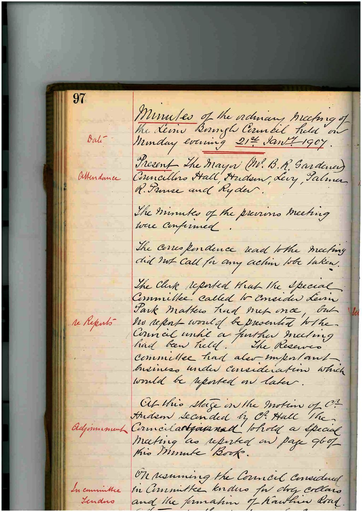 97
Minutes of the ordinary meeting of
the Levin Borough Council held on
Date
Monday evening 21st Jany 1907
Present The Mayor (Mr B. R. Gardener)
Attendance
Councillors Hall, Hudson, Levy, Palmer
R. Prouse and Ryder.
The minutes of the previous meeting
were confirmed.
The correspondence read to the meeting
did not call for any action to be taken.
The Clerk reported that the special
Committee called to consider Levin
Park Matters had met once, but
re Reports
no report would be presented to the
Council until a further meeting
had been held. The Reserves
committee had also important
business under consideration which
would be reported on later.
At this stage on the motion of Cr
Hudson seconded by Cr Hall the
Adjournment
Council adjourned to hold a special
meeting as reported on page 96 of
this Minute Book.
On resuming the Council considered
In committee
in Committee tenders for dog collars
Tenders
and the formation of Road.